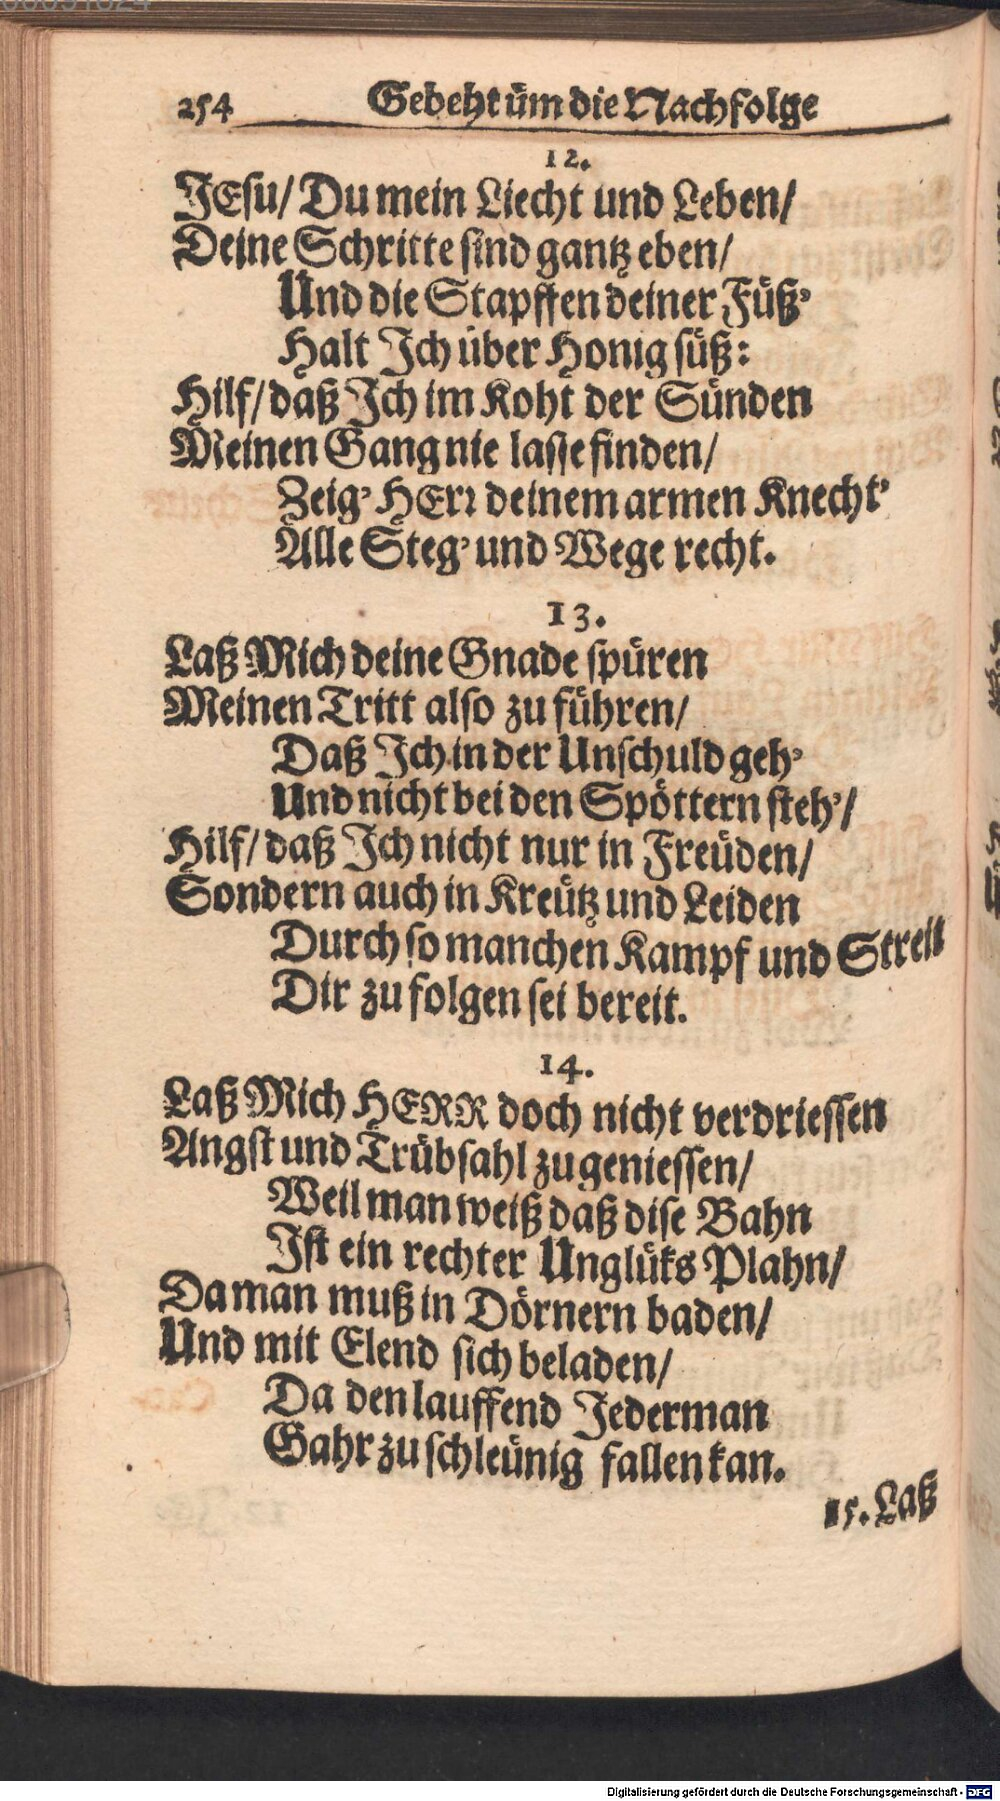 254 Gebeht üm die Nachfolge
12.
JEsu/ Du mein Liecht und Leben/
Deine Schritte sind gantz eben/
Und die Stapffen deiner Füß'
Halt Ich über Honig süß:
Hilf/ daß Ich im Koht der Sünden
Meinen Gang nie lasse finden/
Zeig' HErr deinem armen Knecht'
Alle Steg' und Wege recht.
13.
Laß Mich deine Gnade spüren
Meinen Tritt also zu führen/
Daß Ich in der Unschuld geh'
Und nicht bei den Spöttern steh'/
Hilf/ daß Ich nicht nur in Freüden/
Sondern auch in Kreütz und Leiden
Durch so manchen Kampf und Streit
Dir zu folgen sei bereit.
14.
Laß Mich HERR doch nicht verdriessen
Angst und Trübsahl zu geniessen/
Weil man weiß daß dise Bahn
Ist ein rechter Unglüks Plahn/
Da man muß in Dörnern baden/
Und mit Elend sich beladen/
Da den lauffend Jederman
Gahr zu schleünig fallen kan.
15. Laß
Digitalisierung gefördert durch die Deutsche Forschungsgemeinschaft - DFG